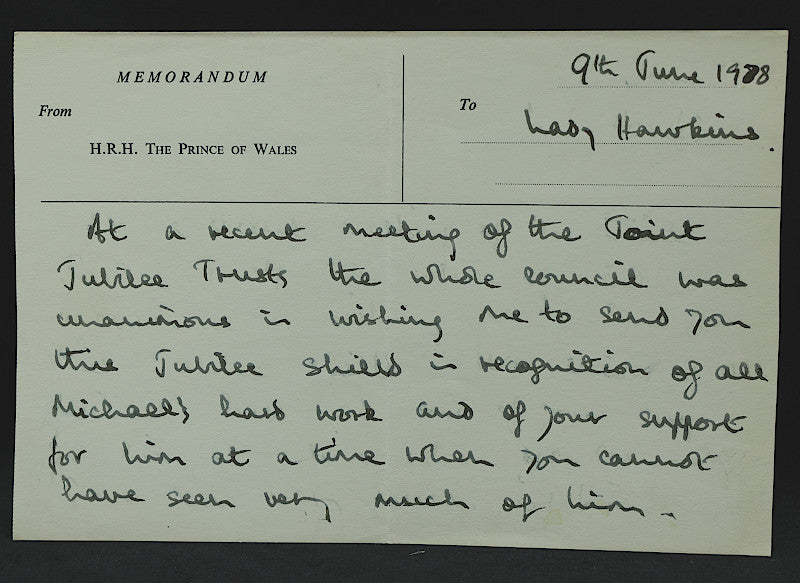 MEMORANDUM
From
H.R.H. The Prince of Wales
9th June 1978
To
Lady Hawkins.
At a recent meeting of the Joint
Jubilee Trusts the whole council was
unanimous in wishing me to send you
this Jubilee shield in recognition of all
Michael's hard work and of your support
for him at a time when you cannot
have seen very much of him.